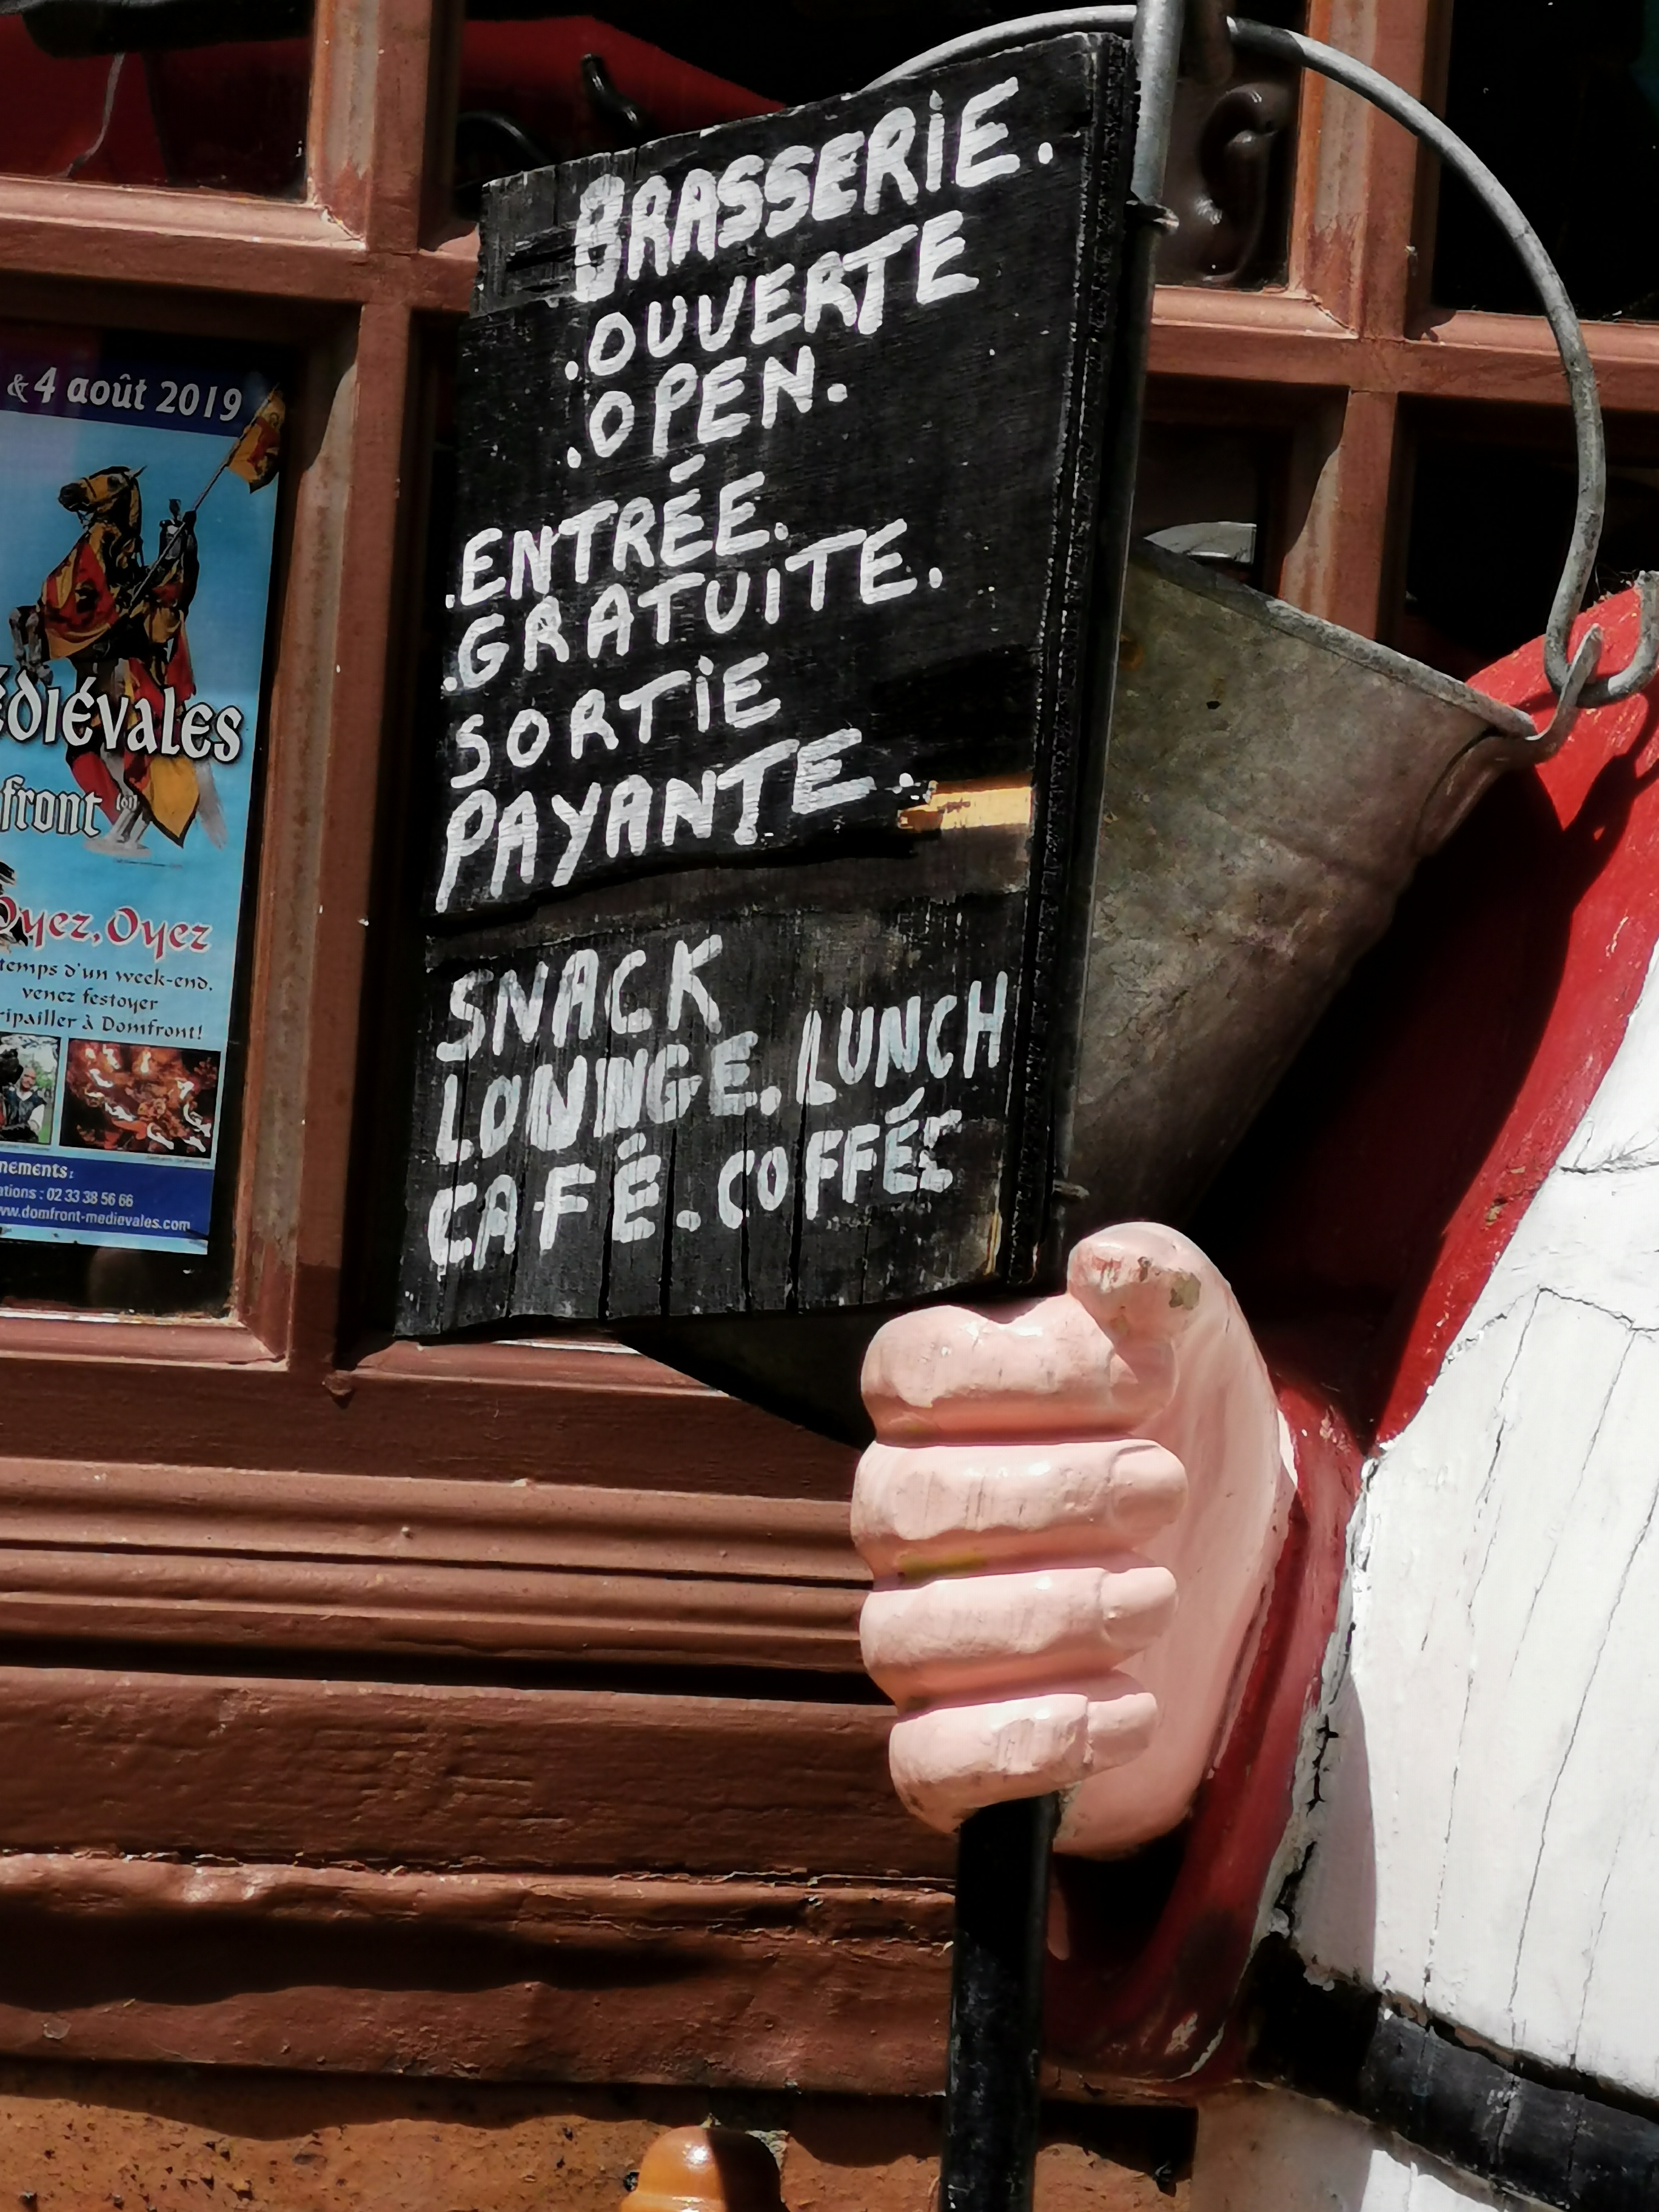 BRASSERIE.
.OUVERTE
.OPEN.
.ENTRÉE.
.GRATUITE.
SORTIE
PAYANTE.
SNACK
LOUNGE. LUNCH
CAFÉ. COFFÉE
& 4 août 2019
édiévales
front
Oyez, Oyez
temps d'un week-end,
venez festoyer
ripailler à Domfront!
nements:
ations : 02 33 38 56 66
ww.domfront-medievales.com